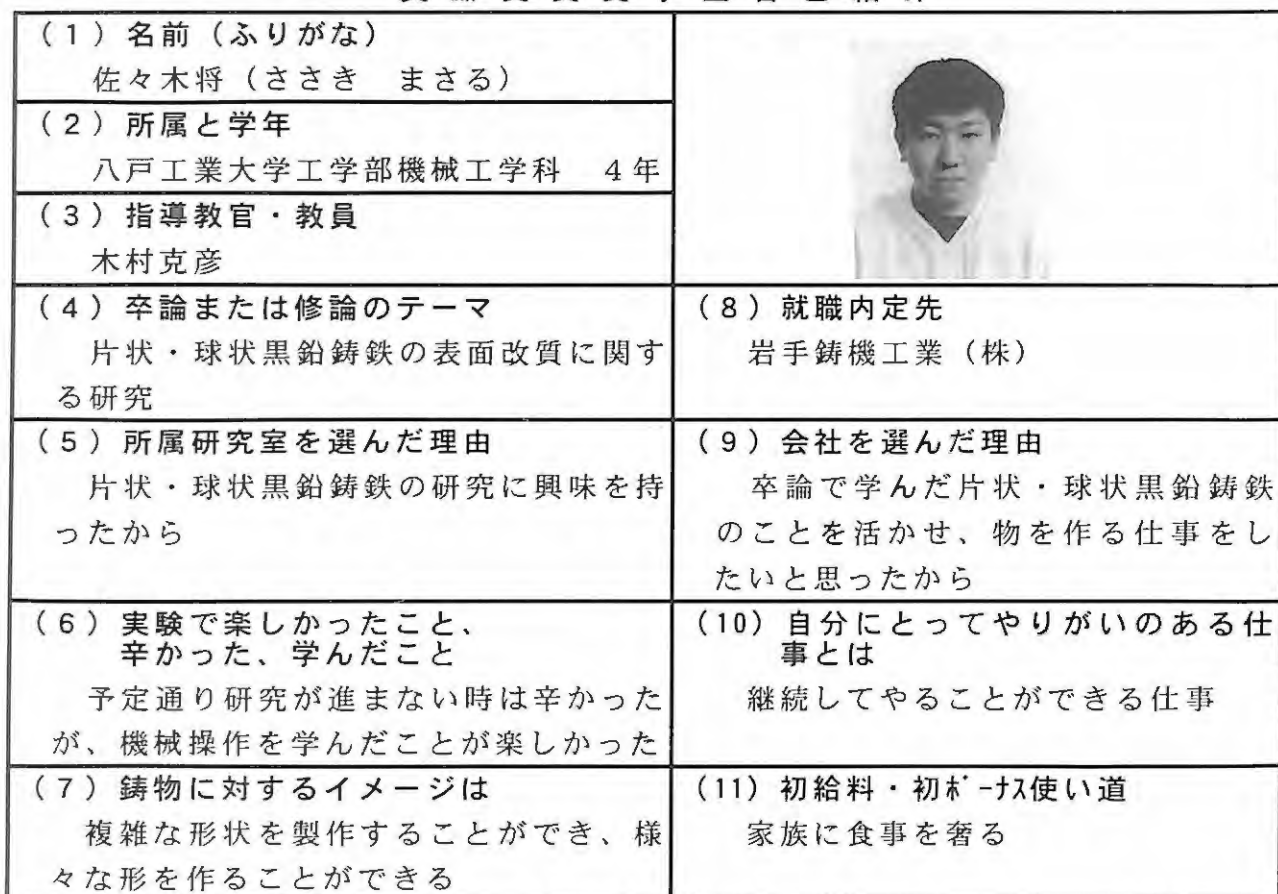 (1)名前(ふりがな)
佐々木将(ささき　まさる)
(2)所属と学年
八戸工業大学工学部機械工学科　4年
(3)指導教官・教員
木村克彦
(4)卒論または修論のテーマ
片状・球状黒鉛鋳鉄の表面改質に関す
る研究
(5)所属研究室を選んだ理由
片状・球状黒鉛鋳鉄の研究に興味を持
ったから
(6)実験で楽しかったこと、
辛かった、学んだこと
予定通り研究が進まない時は辛かった
が、機械操作を学んだことが楽しかった
(7)鋳物に対するイメージは
複雑な形状を製作することができ、様
々な形を作ることができる
(8)就職内定先
岩手鋳機工業(株)
(9)会社を選んだ理由
卒論で学んだ片状・球状黒鉛鋳鉄
のことを活かせ、物を作る仕事をし
たいと思ったから
(10)自分にとってやりがいのある仕
事とは
継続してやることができる仕事
(11)初給料・初ﾎﾞｰﾅｽ使い道
家族に食事を奢る